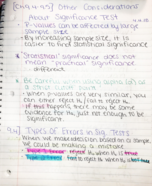 [4.4, 4.45] Other Considerations
About Significance Test
P-values can be affected by large
sample size
By increasing sample size, it is
easier to find statistical significance
Statistical significance does not
mean "practical" significance
different
Be careful
a strict cutoff point
When p-values are very similar, you
can either reject H₀/fail to reject H₀
If reject, there may be some
evidence for Hₐ, just not enough to be
significant.
Types of Errors in Sig Tests
When we make decision based on a simple
we could be making a mistake
reject H₀ when H₀ is true
fail to reject H₀ when H₀ is